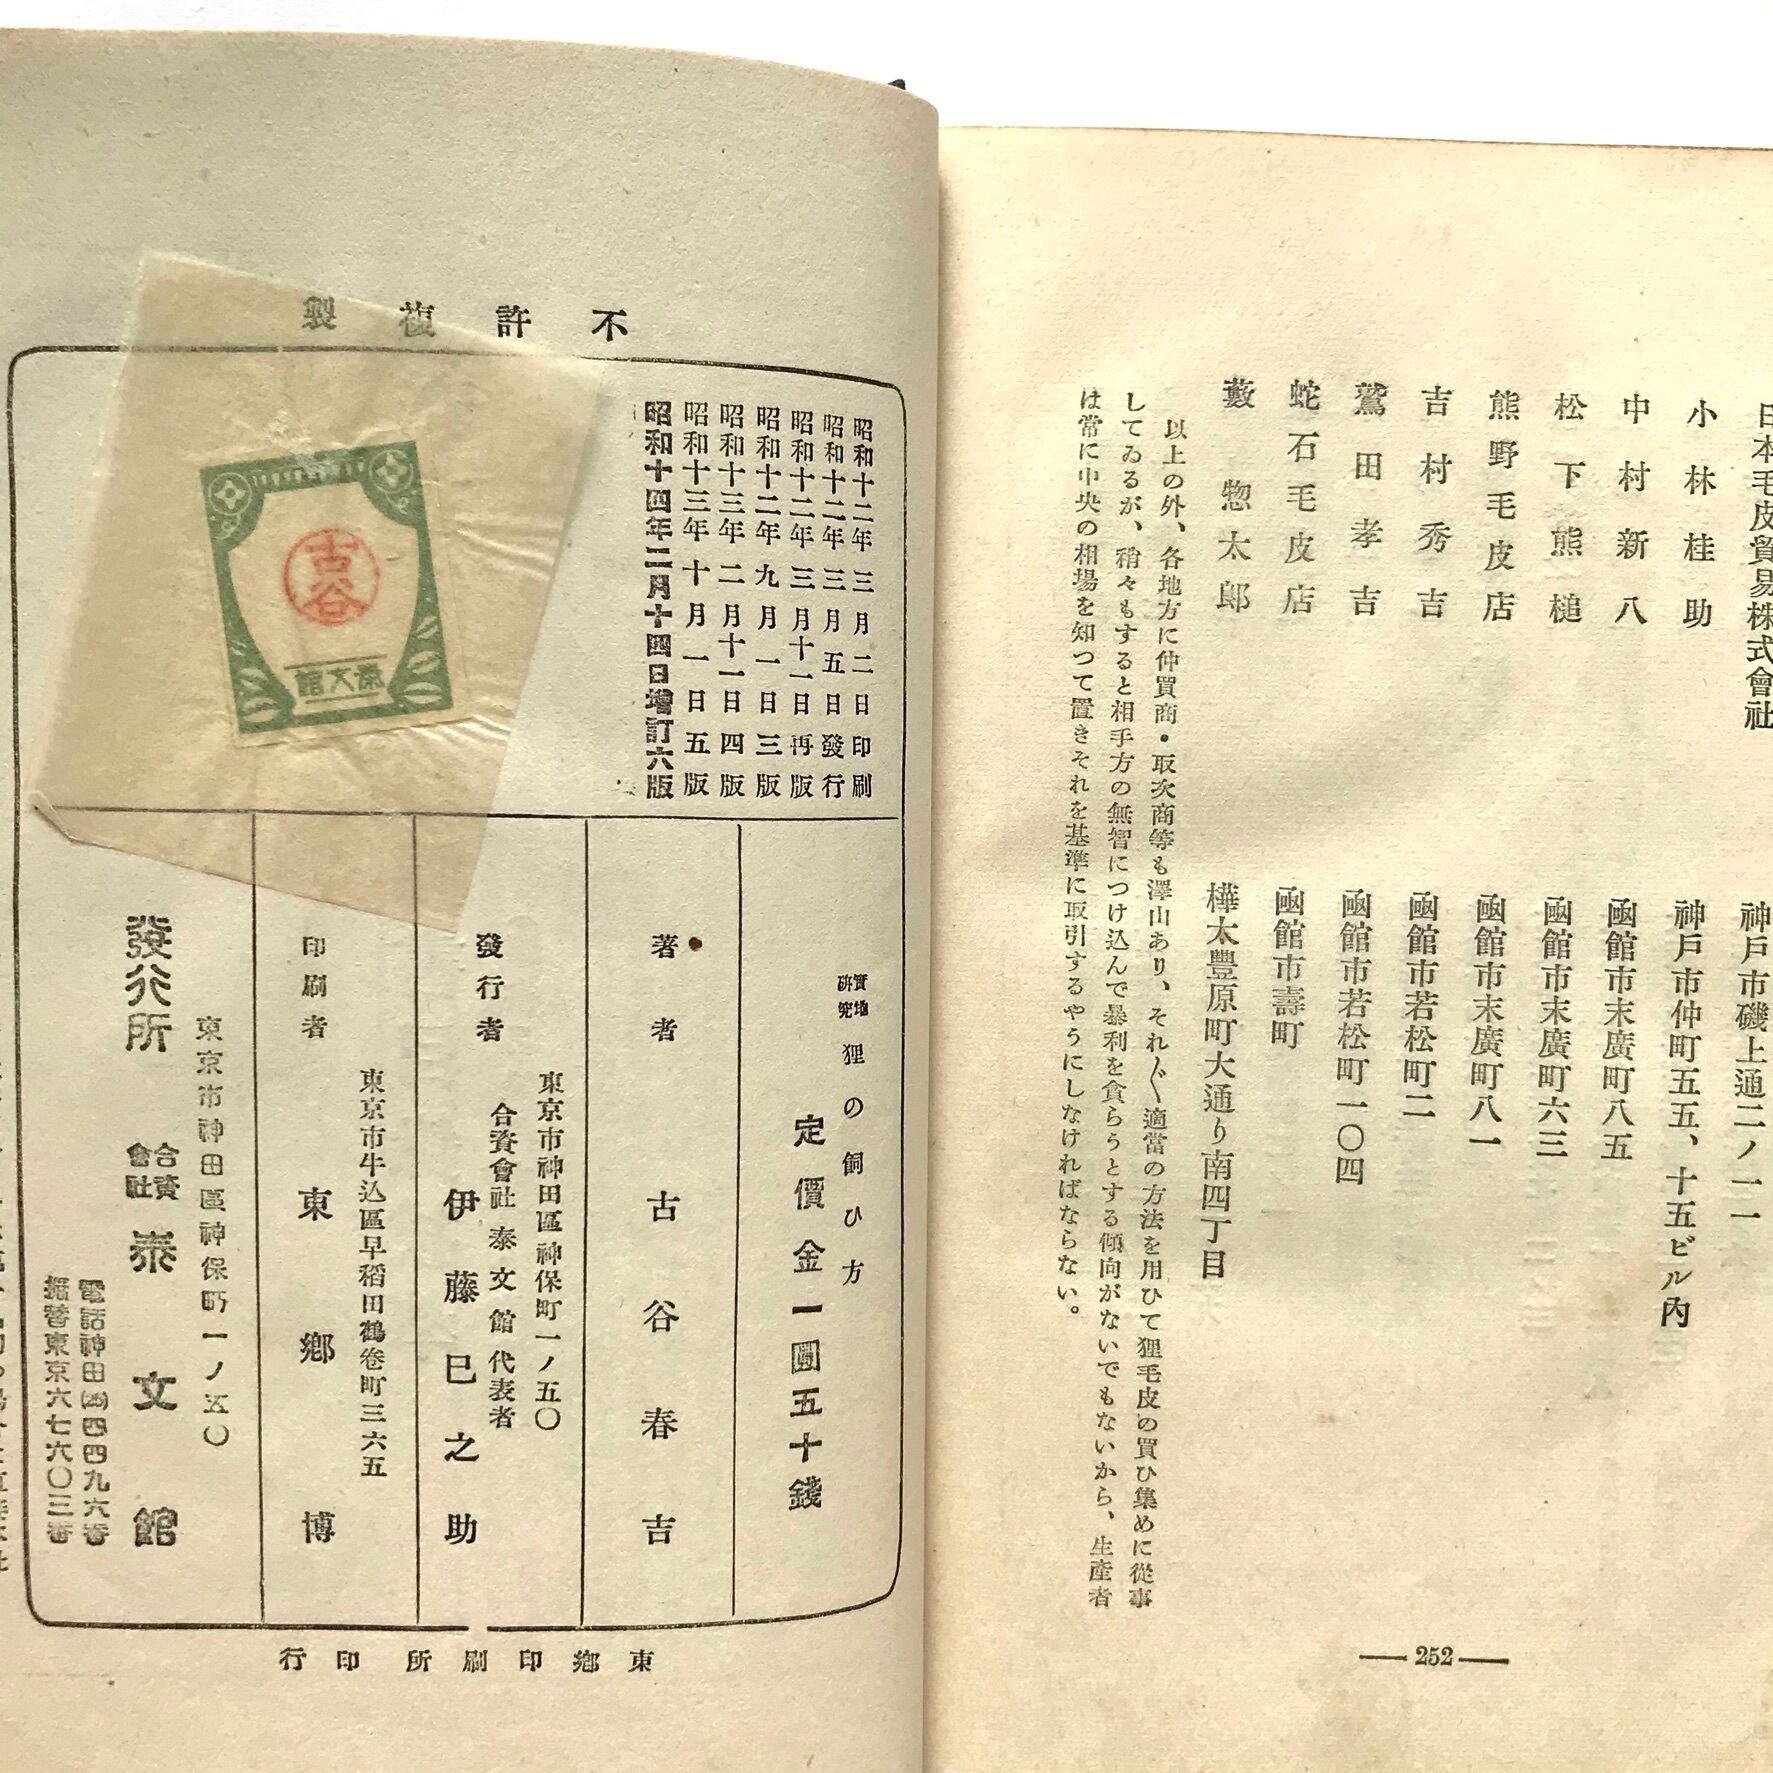 日本毛皮貿易株式會社　神戸市磯上通二ノ一一
小林桂助　神戸市仲町五五、十五ビル內
中村新八　函館市末廣町八五
松下熊槌　函館市末廣町六三
熊野毛皮店　函館市末廣町八一
吉村秀吉　函館市若松町二
鷲田孝吉　函館市若松町一〇四
蛇石毛皮店　函館市壽町
藪惣太郎　樺太豐原町大通り南四丁目
以上の外、各地方に仲買商・取次商等も澤山あり、それ〴〵適當の方法を用ひて狸毛皮の買ひ集めに從事
してゐるが、稍々もすると相手方の無智につけ込んで暴利を貪らうとする傾向がないでもないから、生產者
は常に中央の相場を知つて置きそれを基準に取引するやうにしなければならない。
252
不許複製
昭和十二年三月二日印刷
昭和十二年三月五日發行
昭和十二年三月十一日再版
昭和十二年九月一日三版
昭和十三年二月十一日四版
昭和十三年十月一日五版
昭和十四年二月十四日增訂六版
古谷
泰文館
實地研究　狸の飼ひ方
定價金一圓五十錢
著者　古谷春吉
東京市神田區神保町一ノ五〇
合資會社　泰文館代表者
發行者　伊藤巳之助
東京市牛込區早稻田鶴卷町三六五
印刷者　東鄕博
東京市神田區神保町一ノ五〇
發行所　合資會社　泰文館
電話神田㈣四四九六番
振替東京六七六〇三番
東鄕印刷所印行